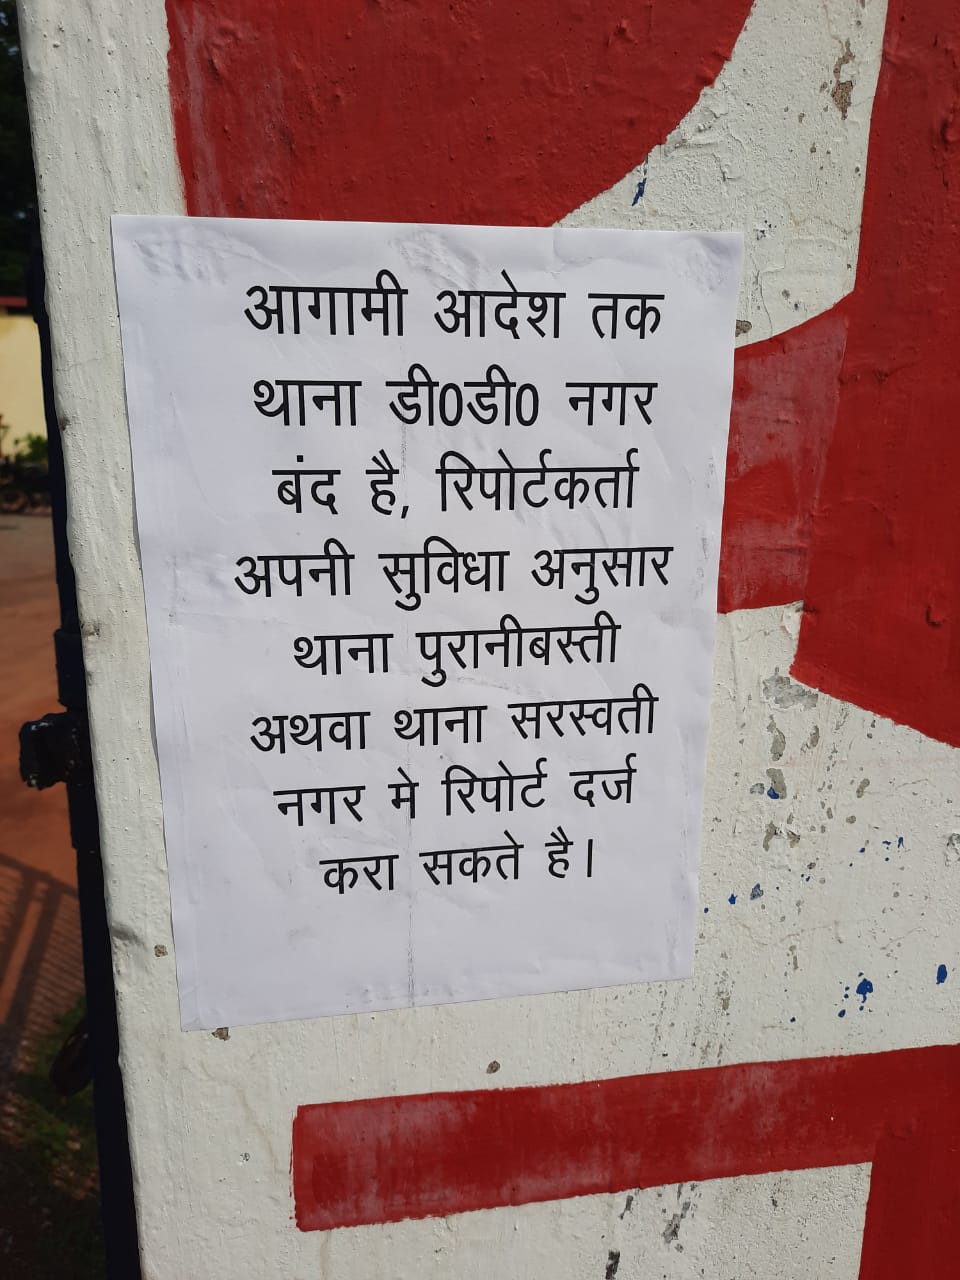 आगामी आदेश तक
थाना डी0डी0 नगर
बंद है, रिपोर्टकर्ता
अपनी सुविधा अनुसार
थाना पुरानीबस्ती
अथवा थाना सरस्वती
नगर मे रिपोर्ट दर्ज
करा सकते है।